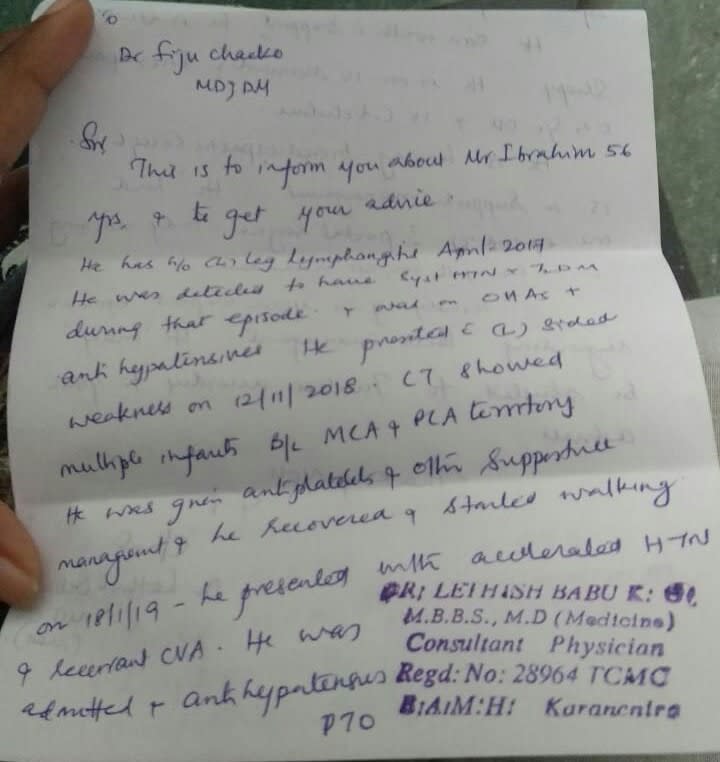 Dr Fiju Chacko
MD, DM
Sir,
This is to inform you about Mr Ibrahim 56
yrs, & to get your advice.
He has h/o (L) leg lymphangitis April 2017
He was detected to have Syst HTN & T2DM
during that episode & was on OHAs +
anti hypertensives He presented c̄ (L) sided
weakness on 12/11/2018. CT showed
multiple infarcts B/L MCA & PCA territory
He was given antiplatelets & other supportive
management & he recovered & started walking
on 18/1/19 - he presented with accelerated HTN
& recurrent CVA. He was
admitted & antihypertensives
PTO
DR: LEIHISH BABU K:
M.B.B.S., M.D (Medicine)
Consultant Physician
Regd: No: 28964 TCMC
B:A:M:H: